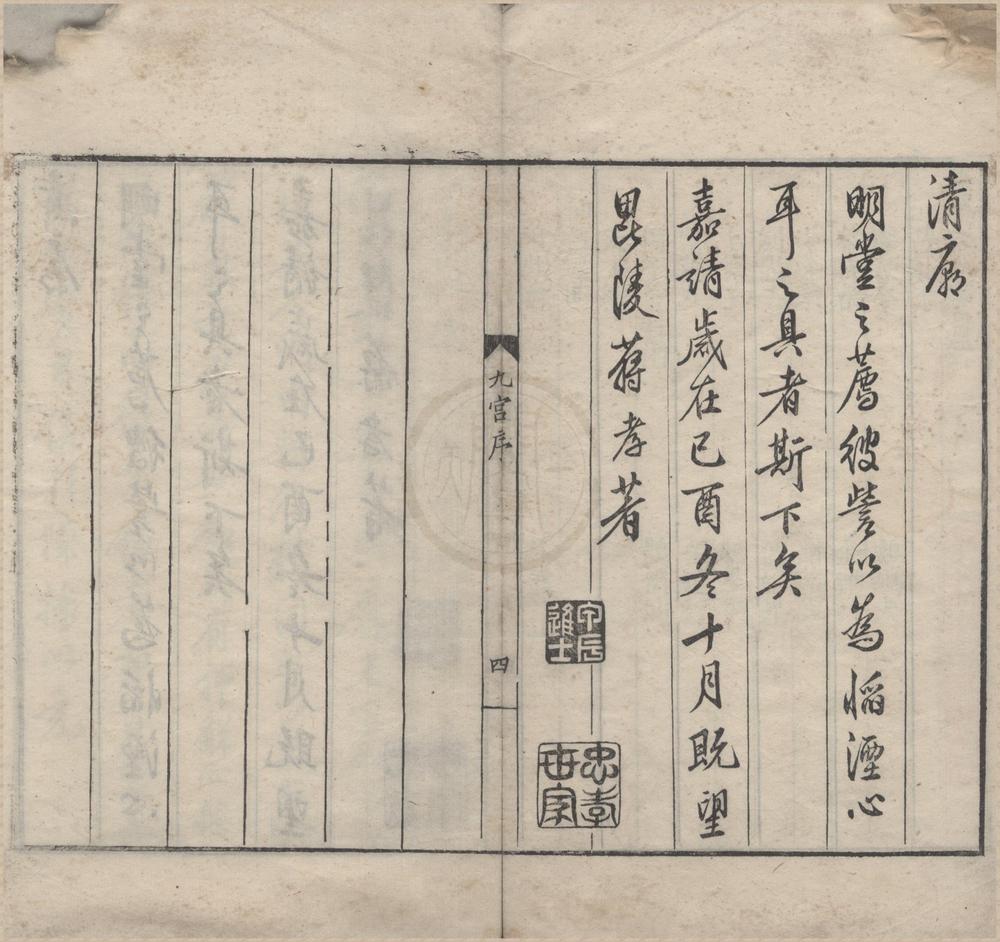 清廟
明堂之薦彼嘗以為慆湮心
耳之具者斯下矣
嘉靖歲在己酉冬十月既望
毘陵蔣孝著
甲辰進士
忠孝世家
九宮序
四